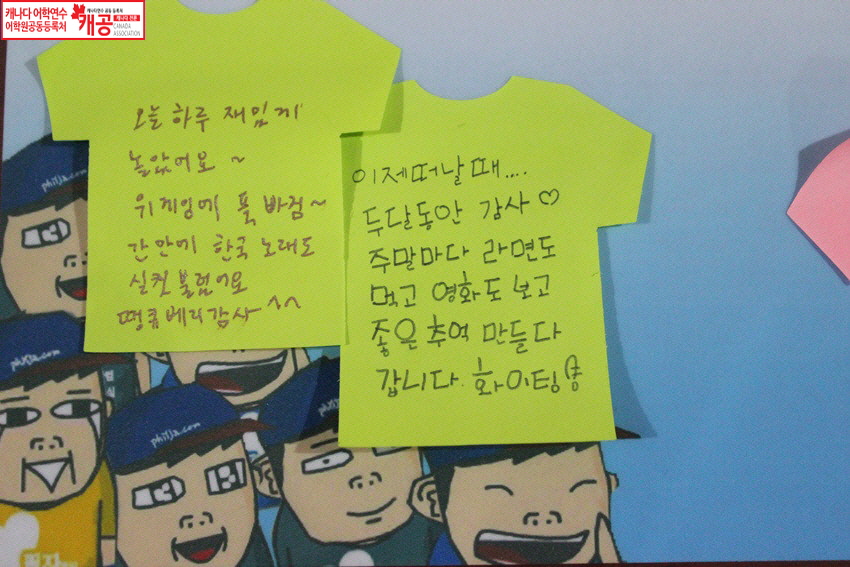 캐나다 어학연수
어학원공동등록처
캐나다연수 공동 등록처
캐공
캐나다 전문
CANADA
ASSOCIATION
오늘 하루 재밌게
놀았어요 ~
위게임에 푹 빠짐~
간만에 한국 노래도
실컷 불렀어요
땡큐베리감사 ^^
이제떠날때....
두달동안 감사♡
주말마다 라면도
먹고 영화도 보고
좋은추억 만들다
갑니다. 화이팅
philja.com
philja.com
philja.com
philja.com
필자